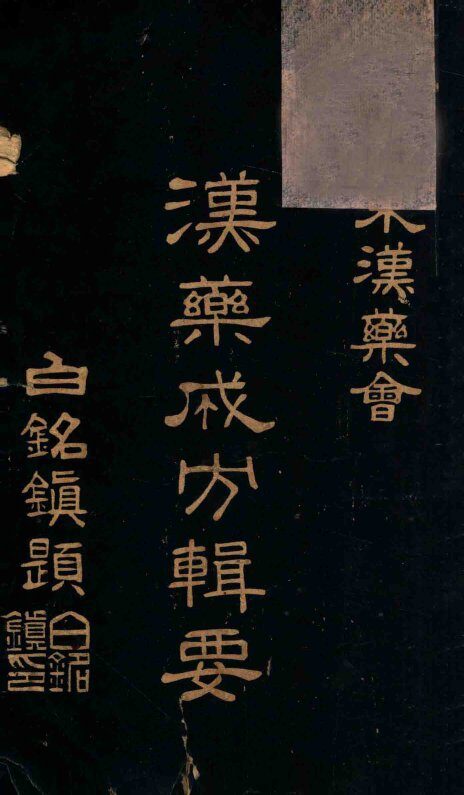 漢藥會
漢藥成方輯要
白銘鎭題
白銘
鎭印